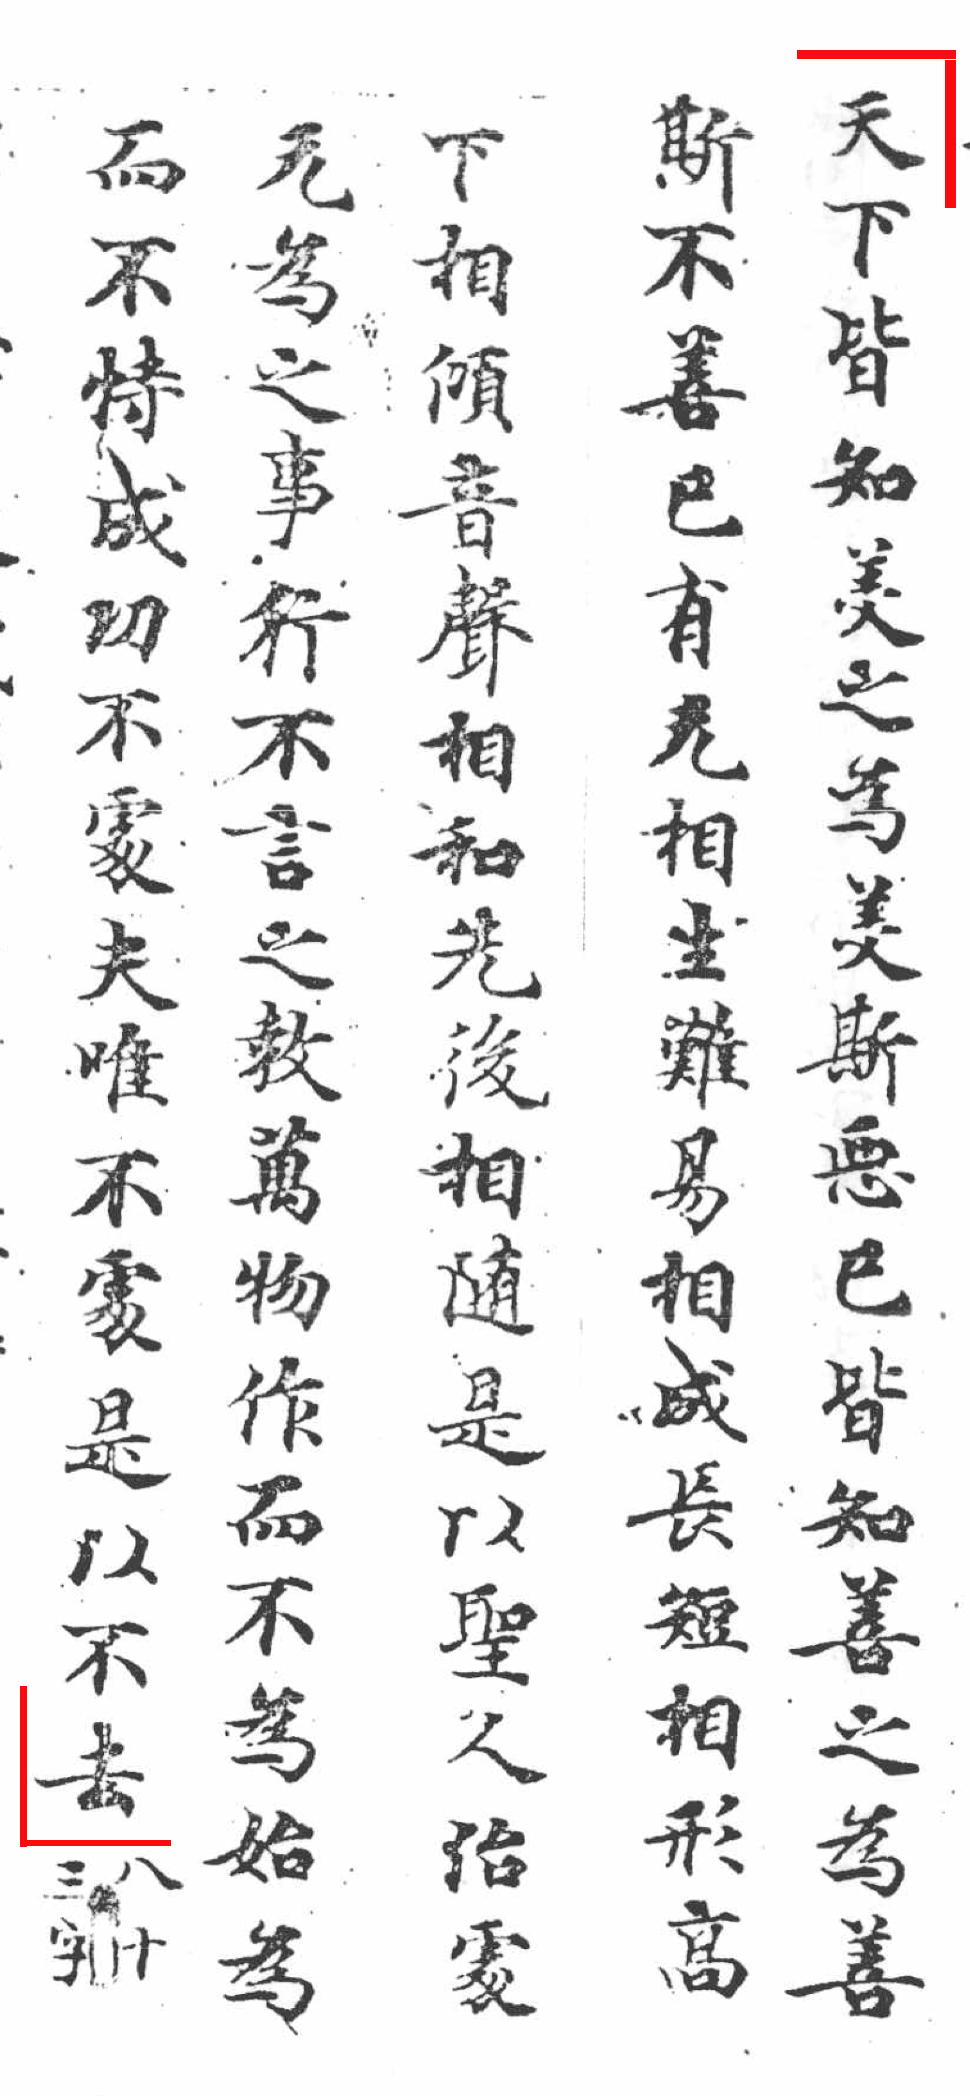 天下皆知美之為美斯惡已皆知善之為善
斯不善已有无相生難易相成長短相形高
下相傾音聲相和先後相随是以聖人治處
无為之事行不言之教萬物作而不為始為
而不恃成功不處夫唯不處是以不去八十三字